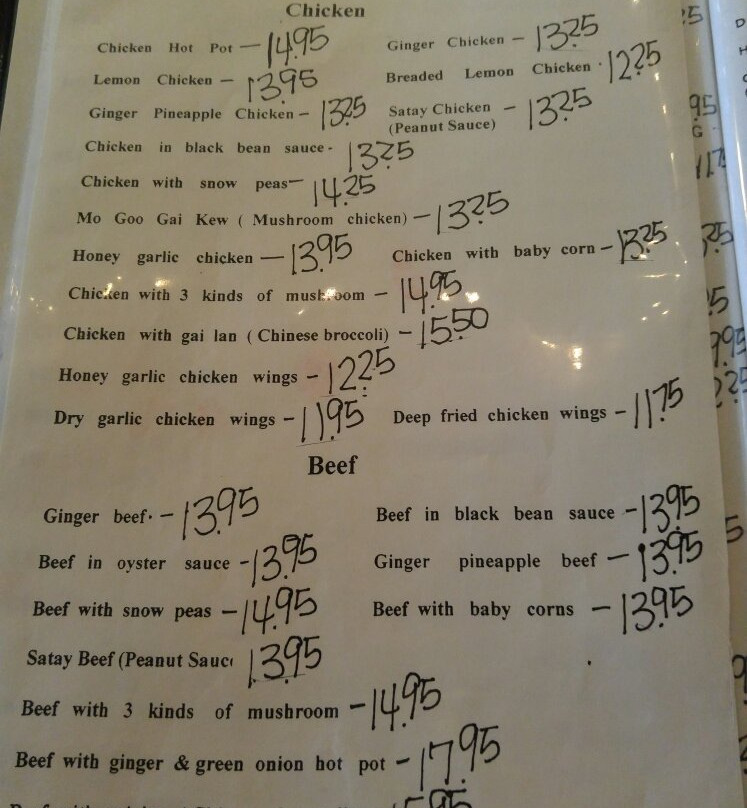 Chicken
Chicken Hot Pot — 14.95 Ginger Chicken – 13.25
Lemon Chicken – 13.95 Breaded Lemon Chicken · 12.25
Ginger Pineapple Chicken – 13.25 Satay Chicken – 13.25
(Peanut Sauce)
Chicken in black bean sauce - 13.25
Chicken with snow peas – 14.25
Mo Goo Gai Kew ( Mushroom chicken) – 13.25
Honey garlic chicken — 13.95 Chicken with baby corn – 13.25
Chicken with 3 kinds of mushroom – 14.95
Chicken with gai lan ( Chinese broccoli) – 15.50
Honey garlic chicken wings – 12.25
Dry garlic chicken wings – 11.95 Deep fried chicken wings – 11.75
Beef
Ginger beef · – 13.95 Beef in black bean sauce – 13.95
Beef in oyster sauce - 13.95 Ginger pineapple beef – 13.95
Beef with snow peas – 14.95 Beef with baby corns – 13.95
Satay Beef (Peanut Sauc 13.95
Beef with 3 kinds of mushroom – 14.95
Beef with ginger & green onion hot pot – 17.95